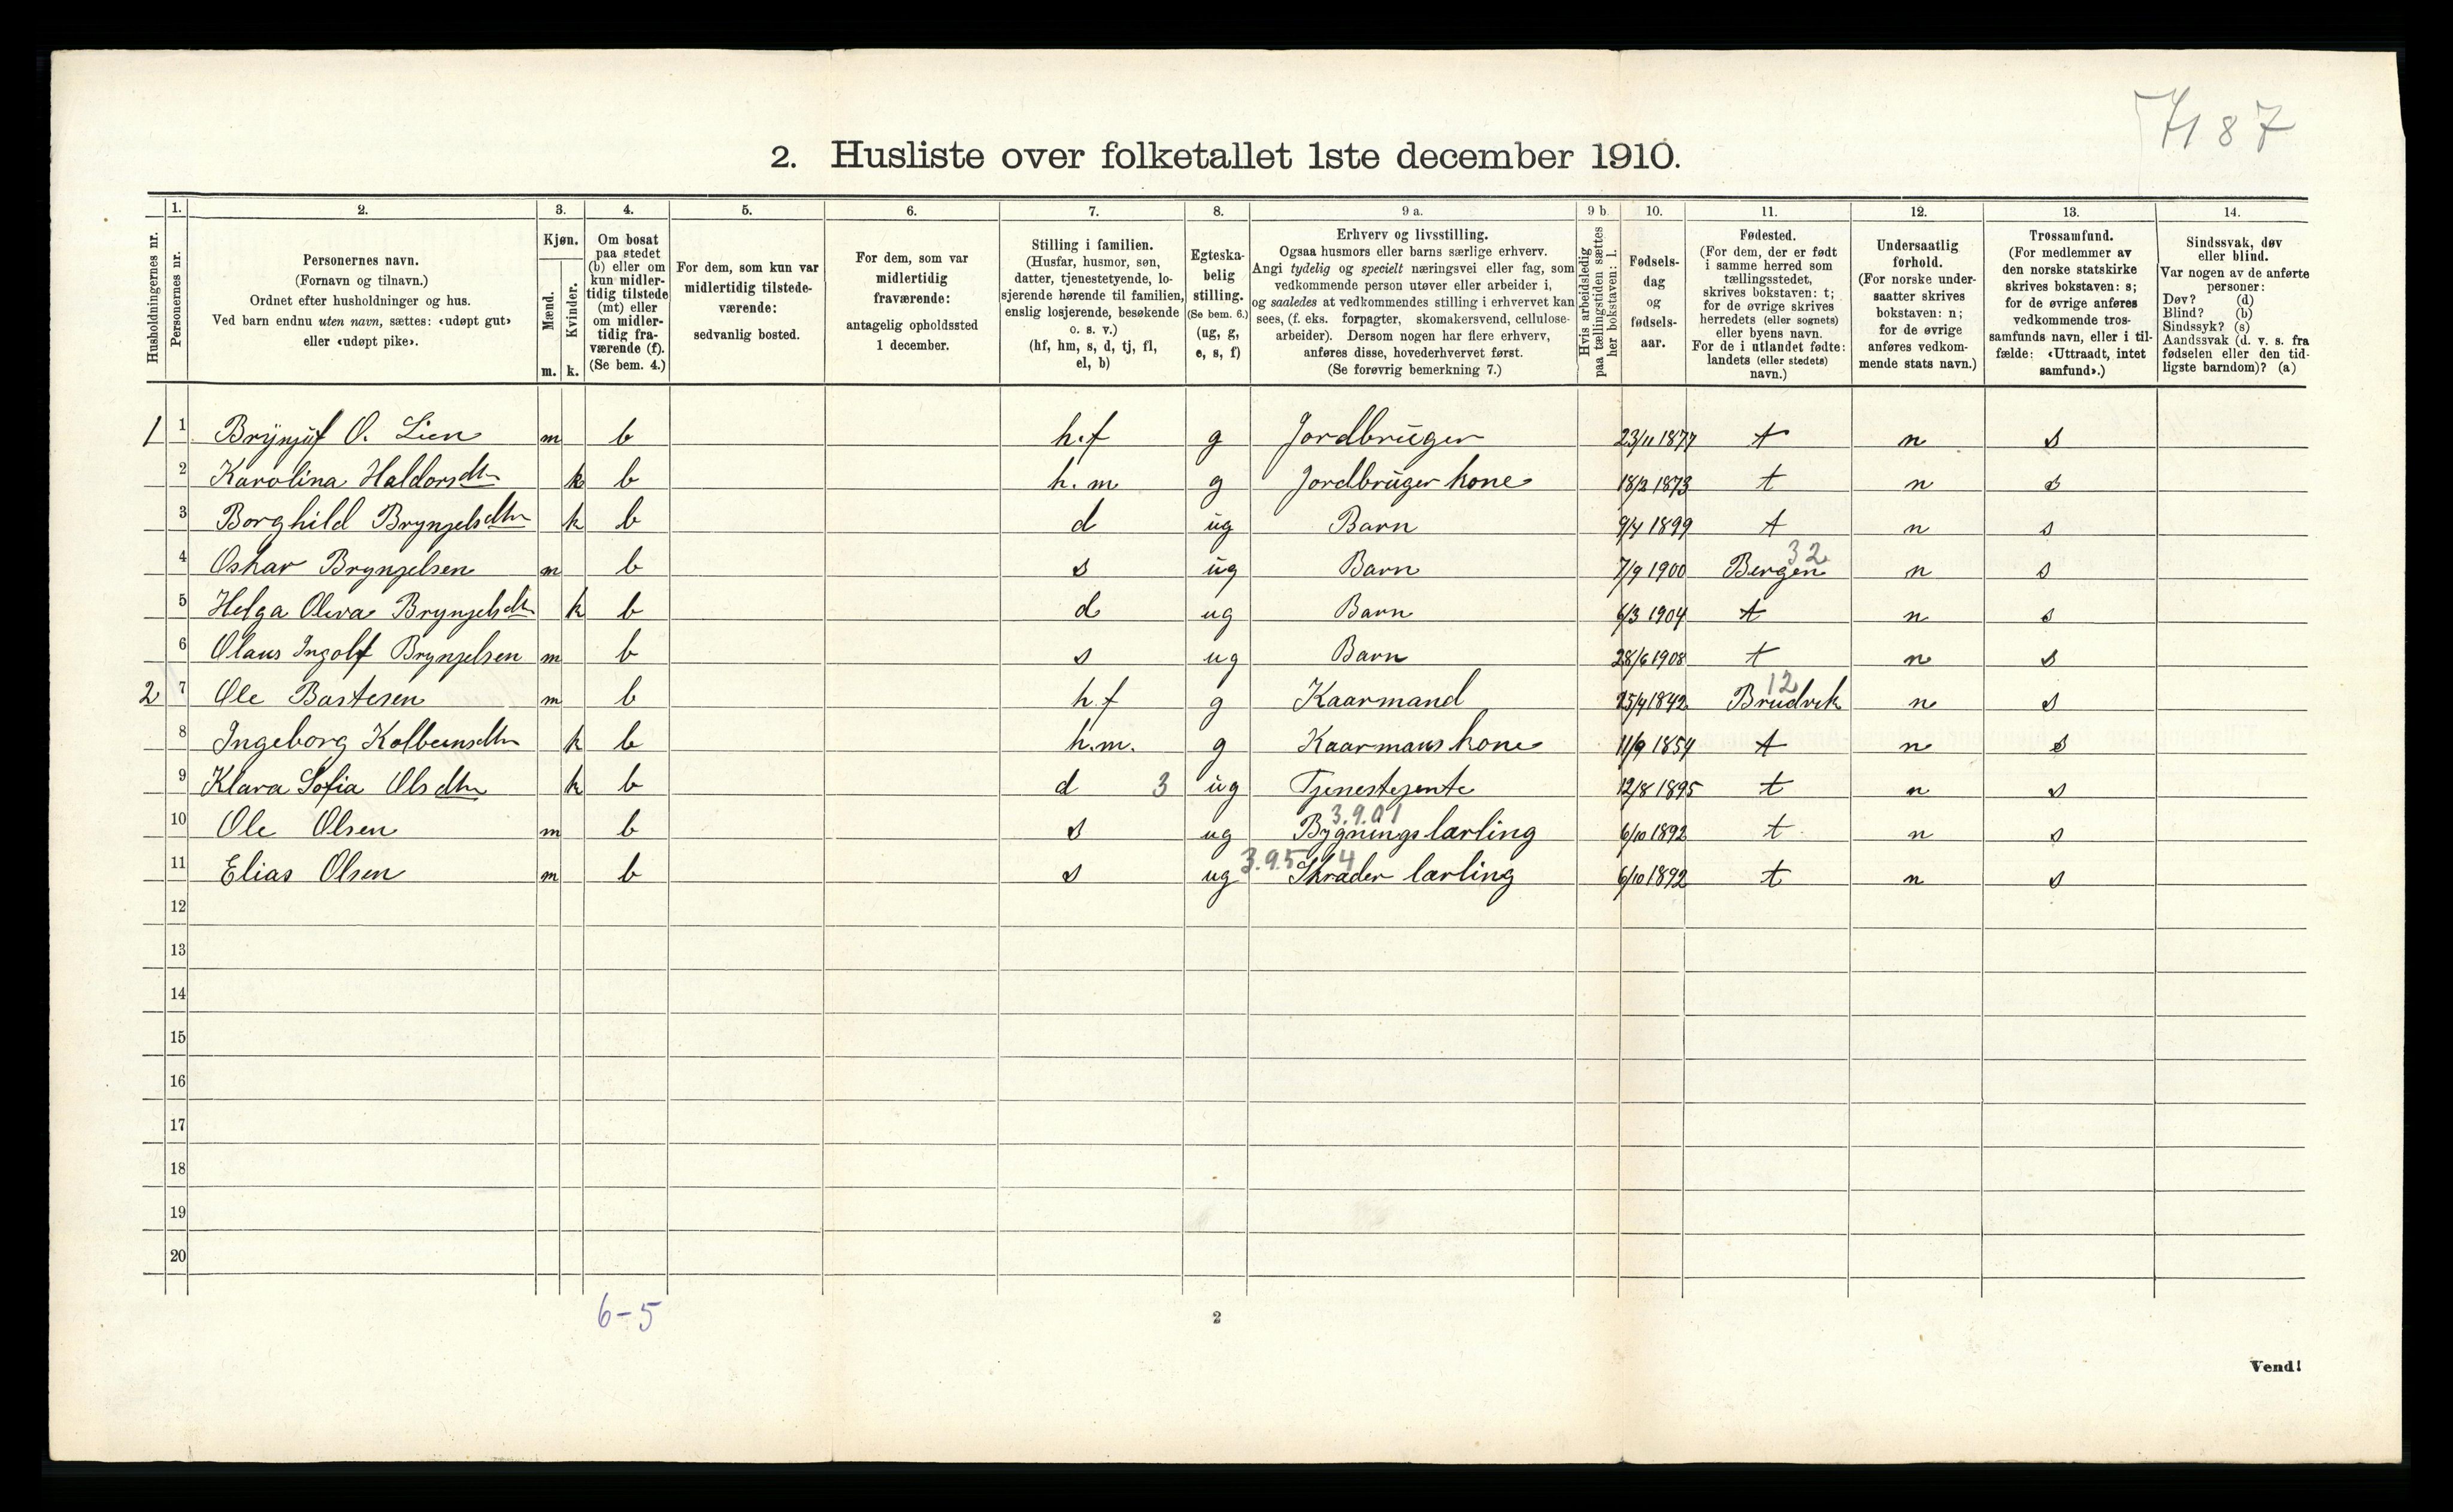 7187
2. Husliste over folketallet 1ste december 1910.
1. 2. 3. 4. 5. 6. 7. 8. 9 a. 9 b. 10. 11. 12. 13. 14.
Husholdningernes nr.
Personernes nr.
Personernes navn.
(Fornavn og tilnavn.)
Ordnet efter husholdninger og hus.
Ved barn endnu uten navn, sættes: «udøpt gut»
eller «udøpt pike».
Kjøn.
Mænd.
Kvinder.
m. k.
Om bosat
paa stedet
(b) eller om
kun midler-
tidig tilstede
(mt) eller
om midler-
tidig fra-
værende (f).
(Se bem. 4.)
For dem, som kun var
midlertidig tilstede-
værende:
sedvanlig bosted.
For dem, som var
midlertidig
fraværende:
antagelig opholdssted
1 december.
Stilling i familien.
(Husfar, husmor, søn,
datter, tjenestetyende, lo-
sjerende hørende til familien,
enslig losjerende, besøkende
o. s. v.)
(hf, hm, s, d, tj, fl,
el, b)
Egteska-
belig
stilling.
(Se bem. 6.)
(ug, g,
e, s, f)
Erhverv og livsstilling.
Ogsaa husmors eller barns særlige erhverv.
Angi tydelig og specielt næringsvei eller fag, som
vedkommende person utøver eller arbeider i,
og saaledes at vedkommendes stilling i erhvervet kan
sees, (f. eks. forpagter, skomakersvend, cellulose-
arbeider). Dersom nogen har flere erhverv,
anføres disse, hovederhvervet først.
(Se forøvrig bemerkning 7.)
Hvis arbeidsledig
paa tællingstiden sættes
her bokstaven: l.
Fødsels-
dag
og
fødsels-
aar.
Fødested.
(For dem, der er født
i samme herred som
tællingsstedet,
skrives bokstaven: t;
for de øvrige skrives
herredets (eller sognets)
eller byens navn.
For de i utlandet fødte:
landets (eller stedets)
navn.)
Undersaatlig
forhold.
(For norske under-
saatter skrives
bokstaven: n;
for de øvrige
anføres vedkom-
mende stats navn.)
Trossamfund.
(For medlemmer av
den norske statskirke
skrives bokstaven: s;
for de øvrige anføres
vedkommende tros-
samfunds navn, eller i til-
fælde: «Uttraadt, intet
samfund».)
Sindssvak, døv
eller blind.
Var nogen av de anførte
personer:
Døv? (d)
Blind? (b)
Sindssyk? (s)
Aandssvak (d. v. s. fra
fødselen eller den tid-
ligste barndom)? (a)
1 1 Brynjulf O. Lien m b h.f g Jordbruger 23/11 1877 t n s
2 Karolina Haldorsdtr k b h.m g Jordbruger kone 18/2 1873 t n s
3 Borghild Brynjelsdtr k b d ug Barn 9/4 1899 t n s
32
4 Oskar Brynjelsen m b s ug Barn 7/9 1900 Bergen n s
5 Helga Oliva Brynjelsdtr k b d ug Barn 6/3 1904 t n s
6 Olaus Ingolf Brynjelsen m b s ug Barn 28/6 1908 t n s
12
2 7 Ole Bastesen m b h.f g Kaarmand 25/4 1842 Brudvik n s
8 Ingeborg Kolbeinsdtr k b h.m. g Kaarmans kone 11/9 1854 t n s
9 Klara Sofia Olsdtr k b d 3 ug Tjenestejente 12/8 1895 t n s
3.9.01
10 Ole Olsen m b s ug Bygnings lærling 6/10 1892 t n s
3.9.5 14
11 Elias Olsen m b s ug Skræder lærling 6/10 1892 t n s
12
13
14
15
16
17
18
19
20
6-5
2
Vend!